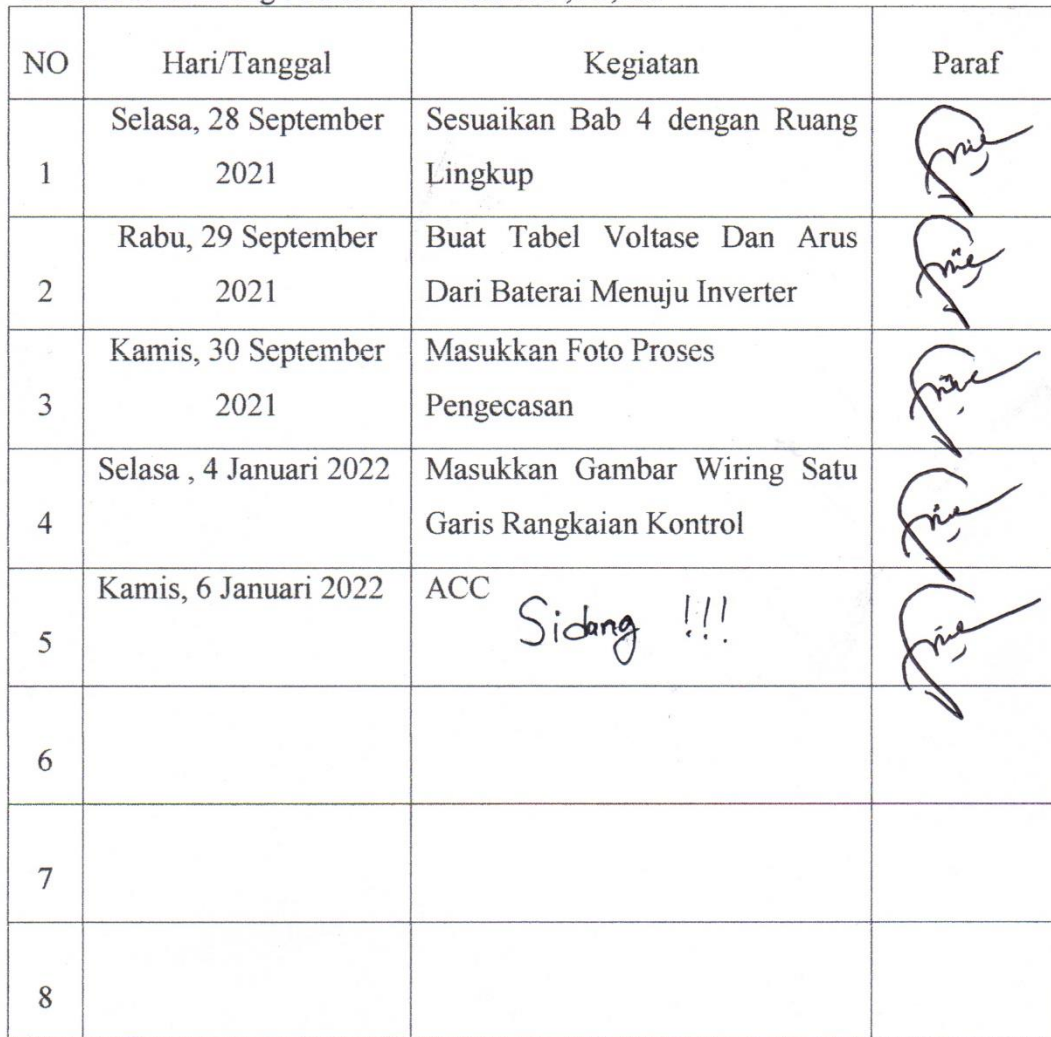 NO Hari/Tanggal Kegiatan Paraf
Selasa, 28 September Sesuaikan Bab 4 dengan Ruang
1 2021 Lingkup
Rabu, 29 September Buat Tabel Voltase Dan Arus
2 2021 Dari Baterai Menuju Inverter
Kamis, 30 September Masukkan Foto Proses
3 2021 Pengecasan
Selasa , 4 Januari 2022 Masukkan Gambar Wiring Satu
4 Garis Rangkaian Kontrol
Kamis, 6 Januari 2022 ACC
5 Sidang !!!
6
7
8